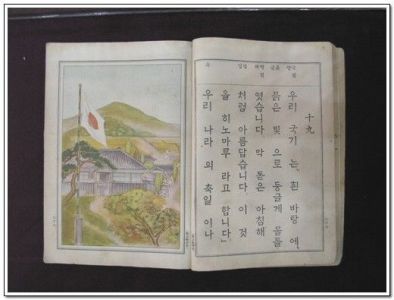 十九
우리 국기는, 흰 바탕에,
붉은 빛으로 둥글게 물들
였습니다. 막 돋은 아침해
처럼 아름답습니다. 이 것
을 히노마루 라고 합니다」
우리 나라의 축일이나